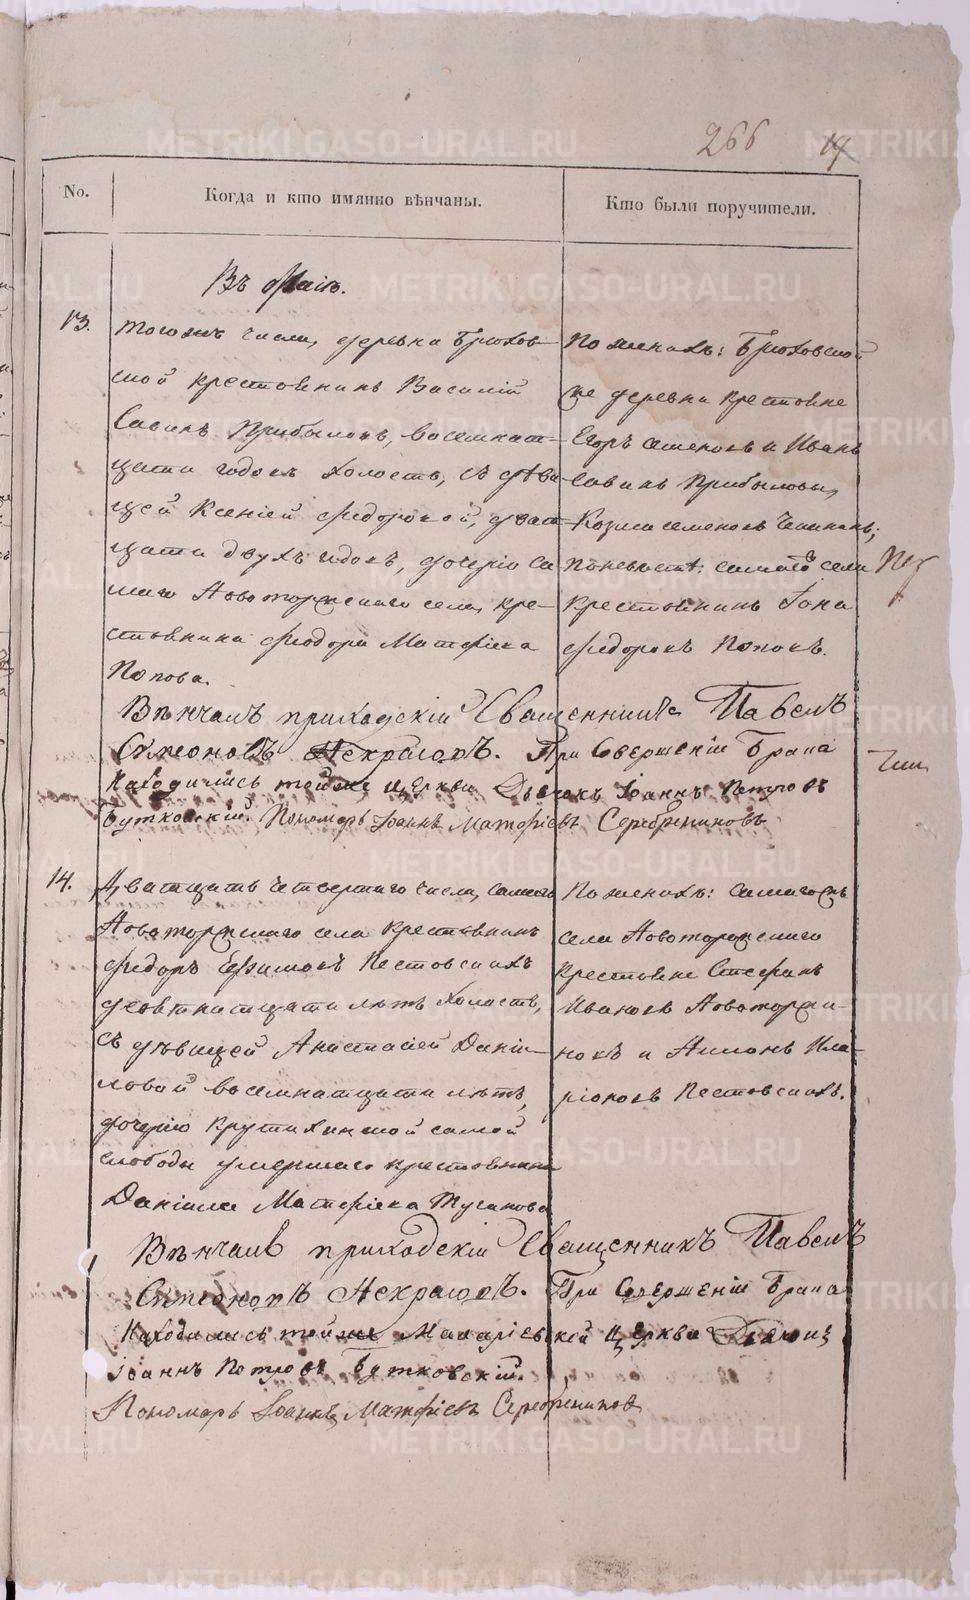 266
19
No.
Когда и кто имянно вѣнчаны.
Кто были поручители.
Въ Маіѣ.
13.
тогожъ числа, деревни Брюхов-
ской крестьянинъ Василій
Савинъ Прибыловъ, восемнат-
цати годовъ холостъ, съ дѣви-
цей Ксеніей Федоровой, дват-
цати двухъ годовъ, дочерію са-
маго Новоторжскаго села, кре-
стьянина Феодора Матфіева
Попова.
По женихѣ: Брюховской
же деревни крестьяне
Егоръ Семеновъ и Иванъ
Савинъ Прибыловы,
Козма Семеновъ
По невѣстѣ: самаго села
крестьянинъ Іона
Федоровъ Поповъ.
Вѣнчалъ приходскій Священникъ Павелъ
Сѵмеоновъ Некрасовъ. При Совершеніи Брака
Находились тойже церкви Діаконъ Іоаннъ Петровъ
Бутковскій. Пономарь Іоаннъ Матфіевъ Серебрениковъ
14.
Дватцать четвертаго числа, самаго
Новоторжскаго села крестьянинъ
Федоръ Ефимовъ Пестовскихъ
девятнатцати лѣтъ холостъ,
съ дѣвицей Анастасіей Даніи-
ловой восемнатцати лѣтъ,
дочерію Крутихинской самой
слободы умершаго крестьянина
Даніила Матфіева Тусанова
По женихѣ: самагожъ
села Новоторжскаго
крестьяне Стефанъ
Ивановъ Новоторжи-
новъ и Аммонъ Ила-
ріоновъ Пестовскихъ.
Вѣнчалъ приходскій Священникъ Павелъ
Сѵмеоновъ Некрасовъ. При Совершеніи Брака
Находились тойже Макаріевской Церкви Діаконъ
Іоаннъ Петровъ Бутковскій.
Пономарь Іоаннъ Матфіевъ Серебрениковъ
METRIKI.GASO-URAL.RU